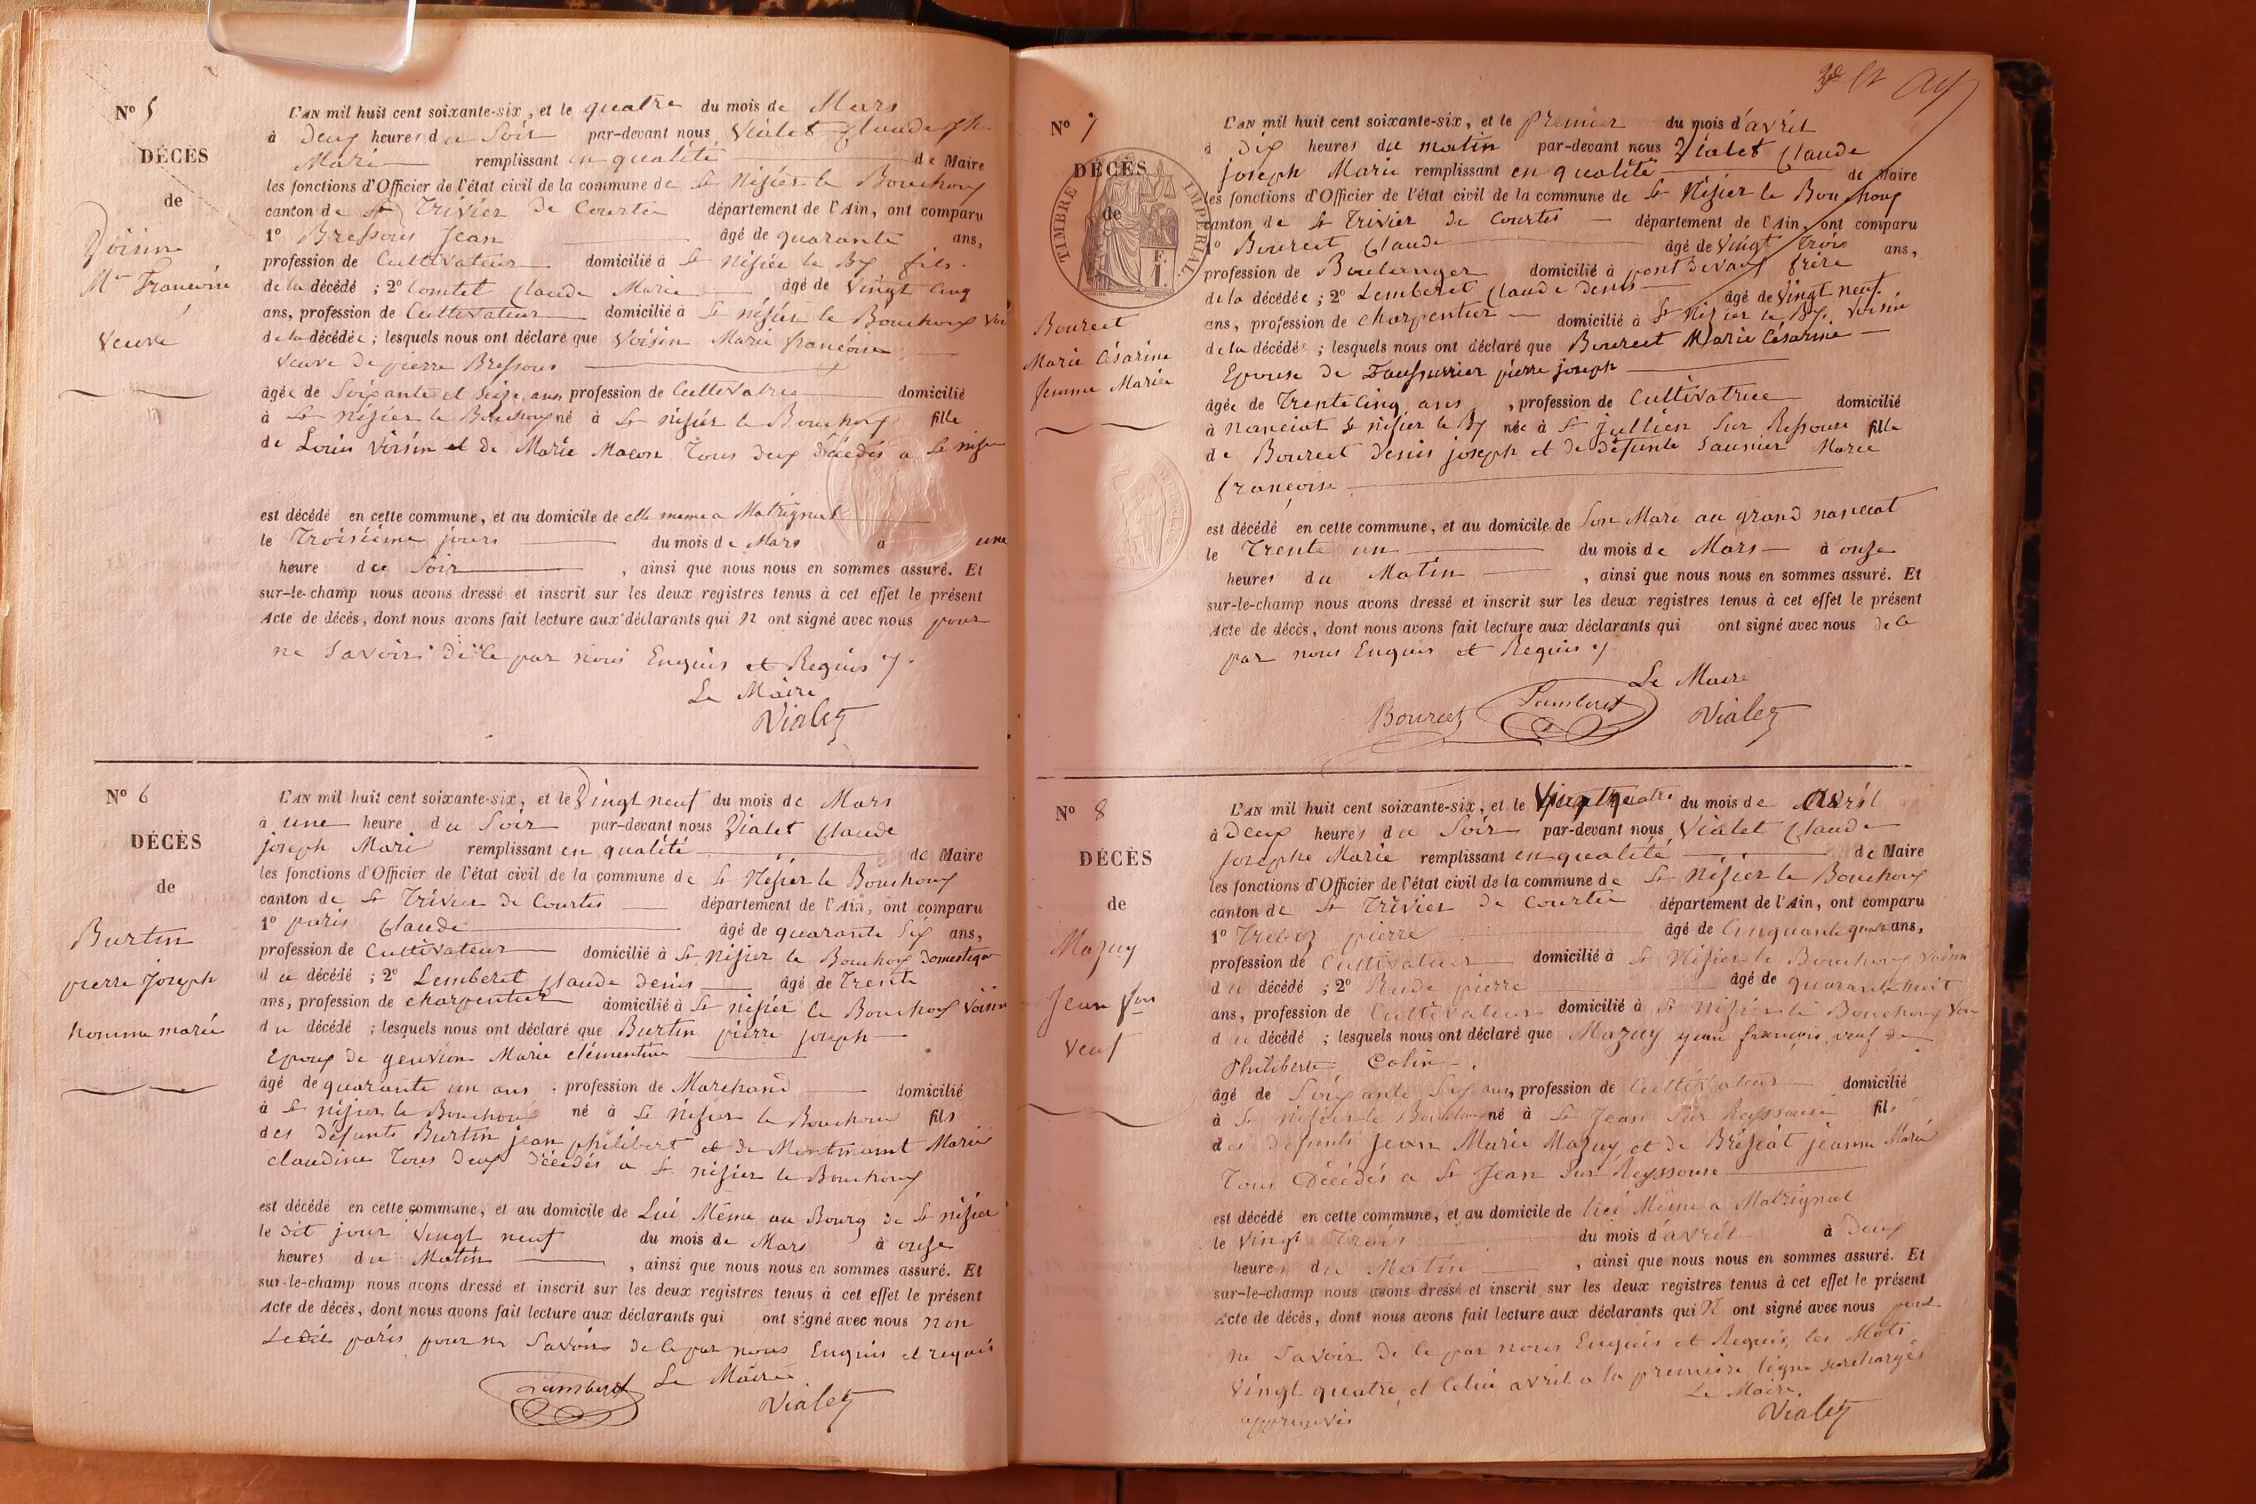 N° 5
DÉCÈS
de
Voisin
Mie Françoise
Veuve
L'AN mil huit cent soixante-six, et le quatre du mois de Mars
à Deux heures du Soir par-devant nous Vialet Claude jh
Marie remplissant en qualité de Maire
les fonctions d'Officier de l'état civil de la commune de St Nizier le Bouchoux
canton de St Trivier de Courtes département de l'Ain, ont comparu
1° Bressoux Jean âgé de quarante ans,
profession de Cultivateur domicilié à St Nizier le Bx fils
de la décédé ; 2° Comtet Claude Marie âgé de Vingt Cinq
ans, profession de Cultivateur domicilié à St nizier le Bouchoux Voi
de la décédée ; lesquels nous ont déclaré que Voisin Marie françoise
Veuve de pierre Bressoux
âgée de Soixante et Seize ans, profession de Cultivatrice domicilié
à St nizier le Bouchoux né à St nizier le Bouchoux fille
de Louis Voisin et de Marie Macon Tous deux décédés a St nizier
est décédé en cette commune, et au domicile de elle meme a Matrignat
le Troisième jours du mois de Mars à une
heure du Soir , ainsi que nous nous en sommes assuré. Et
sur-le-champ nous avons dressé et inscrit sur les deux registres tenus à cet effet le présent
Acte de décès, dont nous avons fait lecture aux déclarants qui N ont signé avec nous pour
ne Savoir de ce par nous Enquis et Requis
Le Maire
Vialet
N° 6
DÉCÈS
de
Burtin
pierre Joseph
homme marié
L'AN mil huit cent soixante-six, et le Vingt neuf du mois de Mars
à une heure du Soir par-devant nous Vialet Claude
joseph Marie remplissant en qualité de Maire
les fonctions d'Officier de l'état civil de la commune de St Nizier le Bouchoux
canton de St Trivier de Courtes département de l'Ain, ont comparu
1° paris Claude âgé de quarante Six ans,
profession de Cultivateur domicilié à St Nizier le Bouchoux Domestique
du décédé ; 2° Lemberet Claude denis âgé de Trente
ans, profession de charpentier domicilié à St nizier le Bouchoux Voisin
du décédé ; lesquels nous ont déclaré que Burtin pierre joseph
Epoux de genvion Marie clémentine
âgé de quarante un ans . profession de Marchand domicilié
à St nizier le Bouchoux né à St Nizier le Bouchoux fils
des Défunts Burtin jean philibert et de Montmaint Marie
claudine Tous deux décédés a St nizier le Bouchoux
est décédé en cette commune, et au domicile de Lui Même au Bourg de St nizier
le dit jour Vingt neuf du mois de Mars à onze
heures du Matin , ainsi que nous nous en sommes assuré. Et
sur-le-champ nous avons dressé et inscrit sur les deux registres tenus à cet effet le présent
Acte de décès, dont nous avons fait lecture aux déclarants qui ont signé avec nous non
Ledit paris pour ne Savoir de ce par nous Enquis et requis
Lamberet Le Maire
Vialet
N° 7
DÉCÈS
de
TIMBRE IMPÉRIAL
Bourcet
Marie Césarine
femme Mariée
L'AN mil huit cent soixante-six, et le premier du mois d'avril
à Dix heures du matin par-devant nous Vialet Claude
joseph Marie remplissant en qualité de Maire
les fonctions d'Officier de l'état civil de la commune de St Nizier le Bouchoux
canton de St Trivier de Courtes département de l'Ain, ont comparu
1° Bourcet Claude âgé de Vingt Trois ans,
profession de Boulanger domicilié à pont devaux frère
de la décédée ; 2° Lemberet Claude denis âgé de Vingt neuf
ans, profession de charpentier domicilié à St Nizier le Bx Voisin
de la décédée ; lesquels nous ont déclaré que Bourcet Marie Césarine
Epouse de Faussurier pierre joseph
âgée de Trente Cinq ans , profession de Cultivatrice domicilié
à nanciat St nizier le Bx née à St jullien Sur Ressouse fille
de Bourcet denis joseph et de défunte Saunier Marie
françoise
est décédé en cette commune, et au domicile de Son Mari au grand nanciat
le Trente un du mois de Mars à onze
heures du Matin , ainsi que nous nous en sommes assuré. Et
sur-le-champ nous avons dressé et inscrit sur les deux registres tenus à cet effet le présent
Acte de décès, dont nous avons fait lecture aux déclarants qui ont signé avec nous de ce
par nous Enquis et Requis
Le Maire
Bourcet Lamberet Vialet
N° 8
DÉCÈS
de
Mazuy
Jean fçois
Veuf
L'AN mil huit cent soixante-six, et le Vingt quatre du mois de Avril
à Deux heures du Soir par-devant nous Vialet Claude
Josephe Marie remplissant en qualité de Maire
les fonctions d'Officier de l'état civil de la commune de St Nizier le Bouchoux
canton de St Trivier de Courtes département de l'Ain, ont comparu
1° Treboz pierre âgé de Cinquante quatre ans,
profession de Cultivateur domicilié à St Nizier le Bouchoux Voisin
du décédé ; 2° Rude pierre âgé de quarante huit
ans, profession de Cultivateur domicilié à St nizier le Bouchoux Voi
du décédé ; lesquels nous ont déclaré que Mazuy jean françois veuf de
Philiberte Colin
âgé de Soixante Six ans, profession de Cultivateur domicilié
à St Nizier le Bouchoux né à St Jean Sur Reyssouse fils
des défunts Jean Marie Mazuy et de Brézeat jeanne Marie
Tous Décédés a St Jean Sur Reyssouse
est décédé en cette commune, et au domicile de lui Même a Matrignat
le Vingt Trois du mois d'avril à Deux
heures du Matin , ainsi que nous nous en sommes assuré. Et
sur-le-champ nous avons dressé et inscrit sur les deux registres tenus à cet effet le présent
Acte de décès, dont nous avons fait lecture aux déclarants qui N ont signé avec nous pour
ne Savoir de ce par nous Enquis et Requis, les Mots
Vingt quatre et Celui avril a la premiere ligne surchargés
approuvés
Le Maire
Vialet